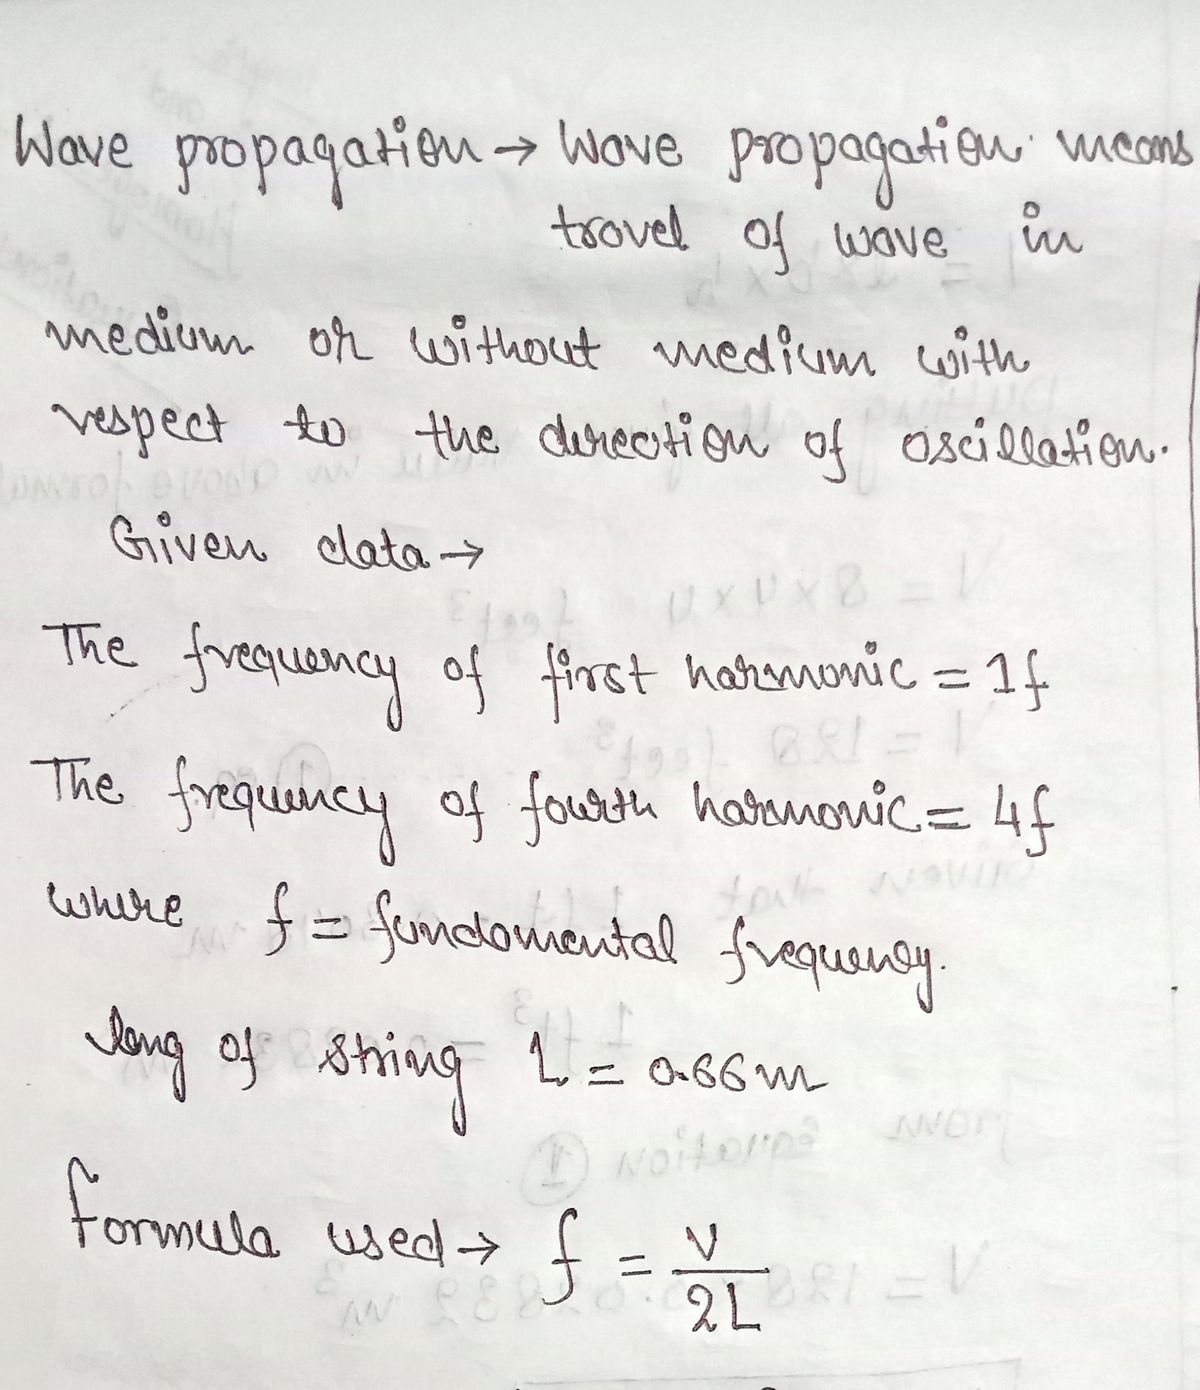 Wave propagation → Wave propagation means
travel of wave in
medium or without medium with
respect to the direction of oscillation.
Given data →
The frequency of first harmonic = 1f
The frequency of fourth harmonic = 4f
where f = fundamental frequency.
leng of string L = 0.66m
formula used → f = V/2L